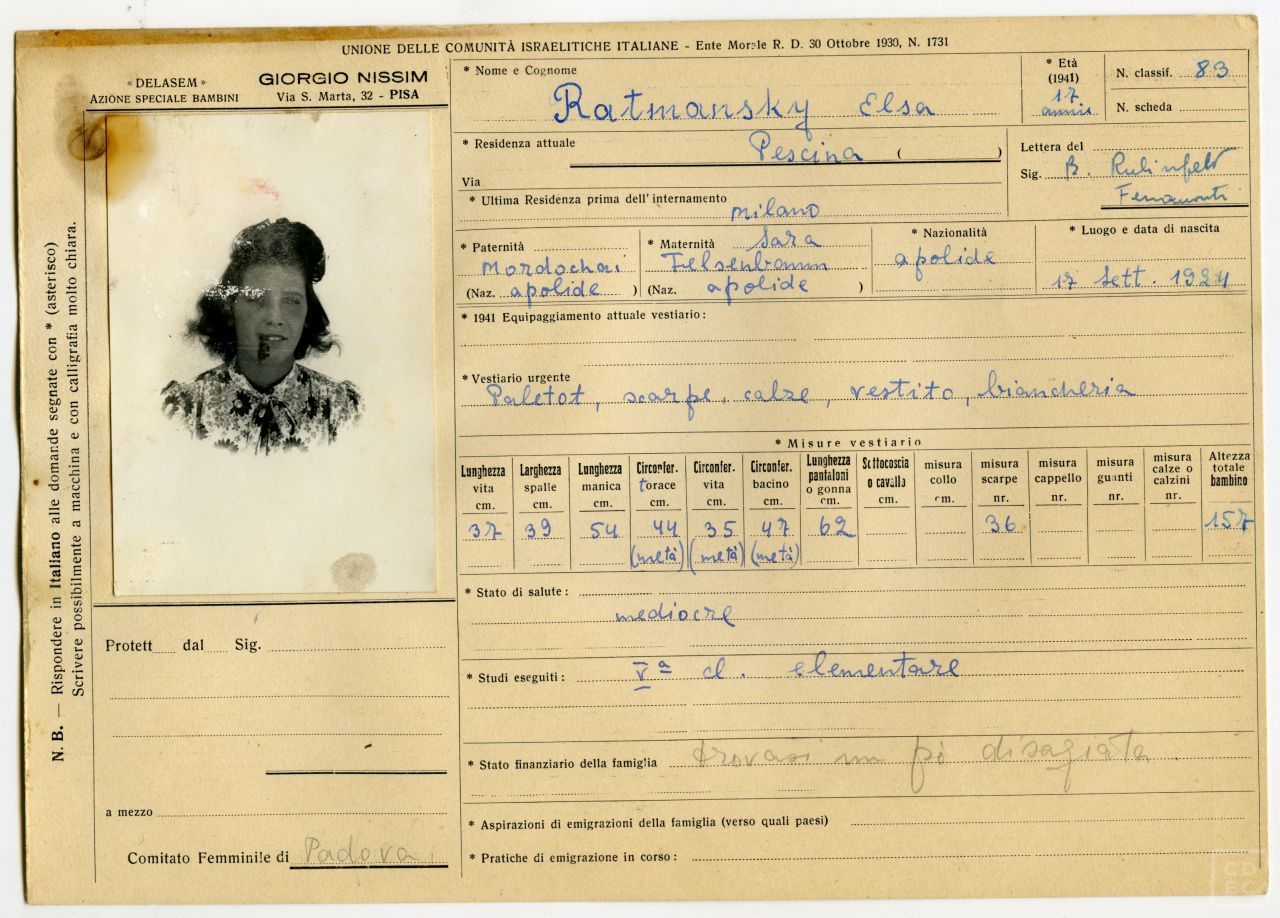 UNIONE DELLE COMUNITÀ ISRAELITICHE ITALIANE - Ente Morale R. D. 30 Ottobre 1930, N. 1731
« DELASEM »
AZIONE SPECIALE BAMBINI
GIORGIO NISSIM
Via S. Marta, 32 - PISA
N. B. — Rispondere in Italiano alle domande segnate con * (asterisco)
Scrivere possibilmente a macchina e con calligrafia molto chiara.
* Nome e Cognome
Ratmansky Elsa
* Età
(1941)
17
anni
N. classif. 83
N. scheda
* Residenza attuale
Pescina ( )
Via
Lettera del
Sig. B.
Ferramonti
* Ultima Residenza prima dell'internamento
Milano
* Paternità
Mordochai
(Naz. apolide )
* Maternità Sara
Felsenbaum
(Naz. apolide )
* Nazionalità
apolide
* Luogo e data di nascita
17 Sett. 1924
* 1941 Equipaggiamento attuale vestiario:
* Vestiario urgente
Paletot, scarpe, calze, vestito, biancheria
* Misure vestiario
Lunghezza vita cm. 37
Larghezza spalle cm. 39
Lunghezza manica cm. 54
Circonfer. torace cm. 44 (metà)
Circonfer. vita cm. 35 (metà)
Circonfer. bacino cm. 47 (metà)
Lunghezza pantaloni o gonna cm. 62
Sottocoscia o cavallo cm.
misura collo cm.
misura scarpe nr. 36
misura cappello nr.
misura guanti nr.
misura calze o calzini nr.
Altezza totale bambino 157
* Stato di salute:
mediocre
* Studi eseguiti: Vª cl. elementare
* Stato finanziario della famiglia trovasi un pò disagiata.
* Aspirazioni di emigrazioni della famiglia (verso quali paesi)
* Pratiche di emigrazione in corso:
Protett dal Sig.
a mezzo
Comitato Femminile di Padova
CDEC